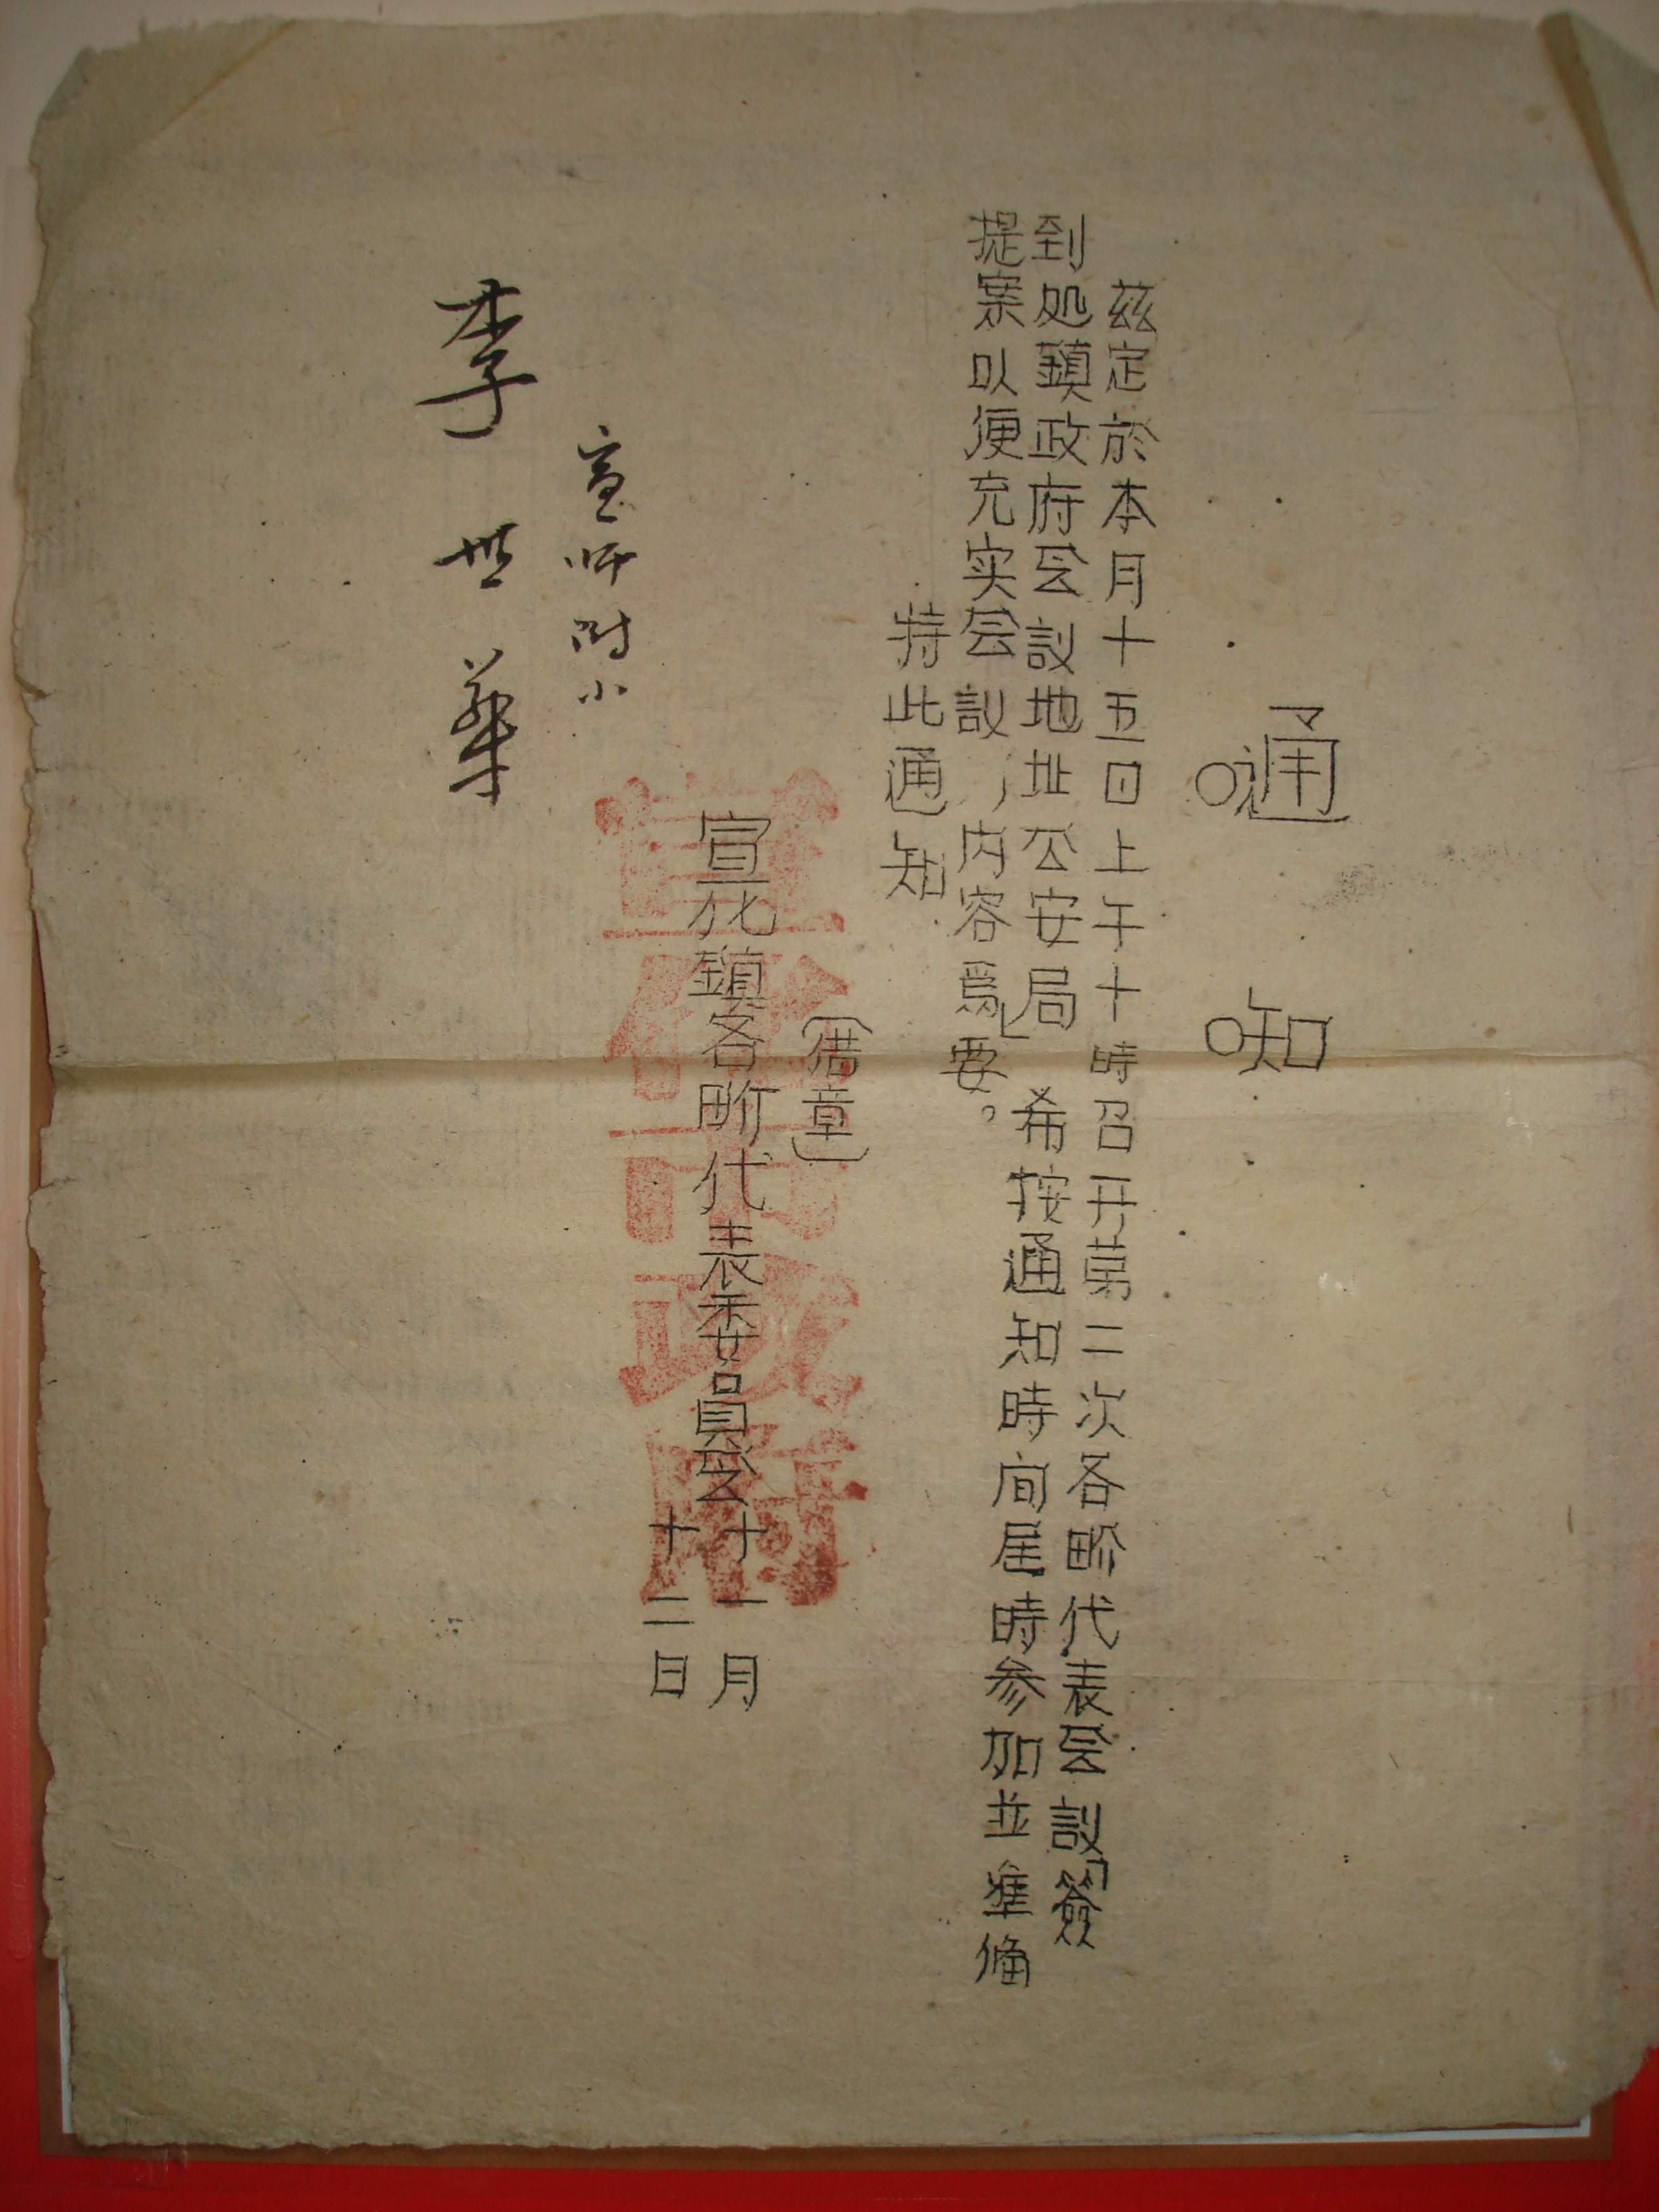 通知
茲定於本月十五日上午十時召开第二次各畍代表会議「簽
到処鎮政府会議地址公安局」希按通知時间届時参加並準俻
提案以便充实会議，内容爲要。
特此通知
(借章)
宣化鎮各畍代表委員会
十一月
十二日
宣化市政府
宣师附小
李世華